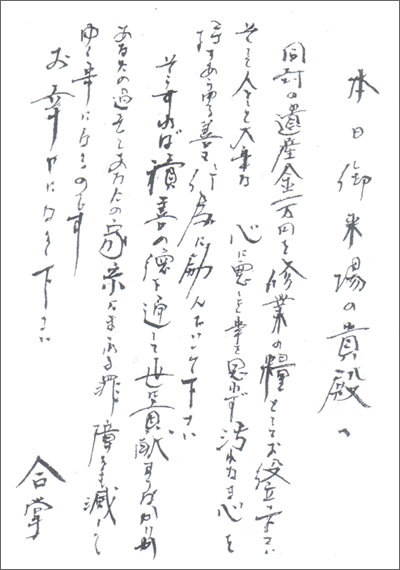 本日御来場の貴殿へ
同封の遺産金一万円を修業の糧としてお役立下さい
そして人として大事な 心に悪しき事を思わず汚れなき心を
持ちあらゆる善を行為に励んでいって下さい
そうすれば積善の徳を通して世に貢献するばかりか
あなたの過去とあなたの家系にまつわる罪障をも滅して
ゆく事になるのです
お幸せになって下さい
合掌